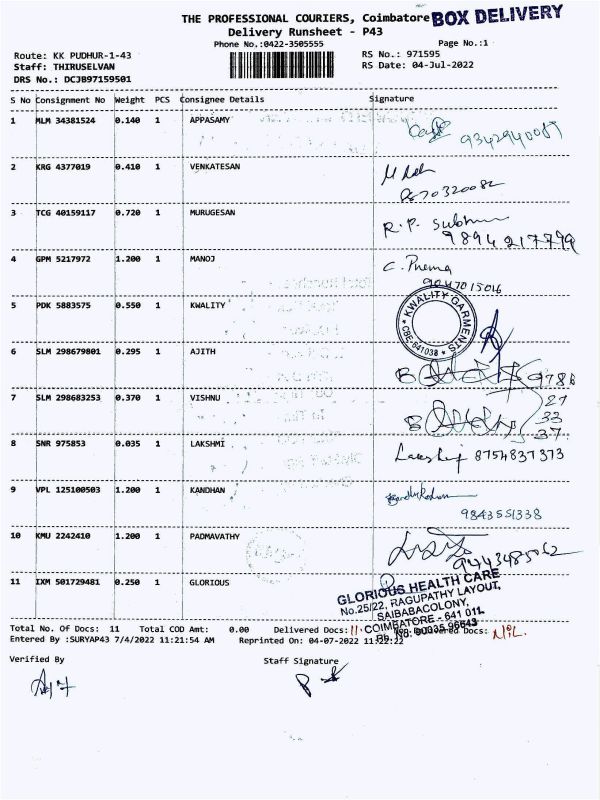 THE PROFESSIONAL COURIERS, Coimbatore BOX DELIVERY
Delivery Runsheet - P43
Phone No.:0422-3505555 Page No.:1
Route: KK PUDHUR-1-43 RS No.: 971595
Staff: THIRUSELVAN RS Date: 04-Jul-2022
DRS No.: DCJB97159501
S No Consignment No Weight PCS Consignee Details Signature
1 MLM 34381524 0.140 1 APPASAMY
2 KRG 4377019 0.410 1 VENKATESAN
3 TCG 40159117 0.720 1 MURUGESAN R.P.
9894217799
4 GPM 5217972 1.200 1 MANOJ C. Prema
9047015016
5 PDK 5883575 0.550 1 KWALITY KWALITY GARMENTS * CBE-641038 *
6 SLM 298679801 0.295 1 AJITH
7 SLM 298683253 0.370 1 VISHNU 27
33
37
8 SNR 975853 0.035 1 LAKSHMI 8754837373
9 VPL 125100503 1.200 1 KANDHAN
9843551338
10 KMU 2242410 1.200 1 PADMAVATHY
11 IXM 501729481 0.250 1 GLORIOUS GLORIOUS HEALTH CARE
No.25/22, RAGUPATHY LAYOUT,
SAIBABACOLONY,
COIMBATORE - 641 011.
Total No. Of Docs: 11 Total COD Amt: 0.00 Delivered Docs: 11. Docs: NIL.
Entered By :SURYAP43 7/4/2022 11:21:54 AM Reprinted On: 04-07-2022 11:22:22
Verified By Staff Signature